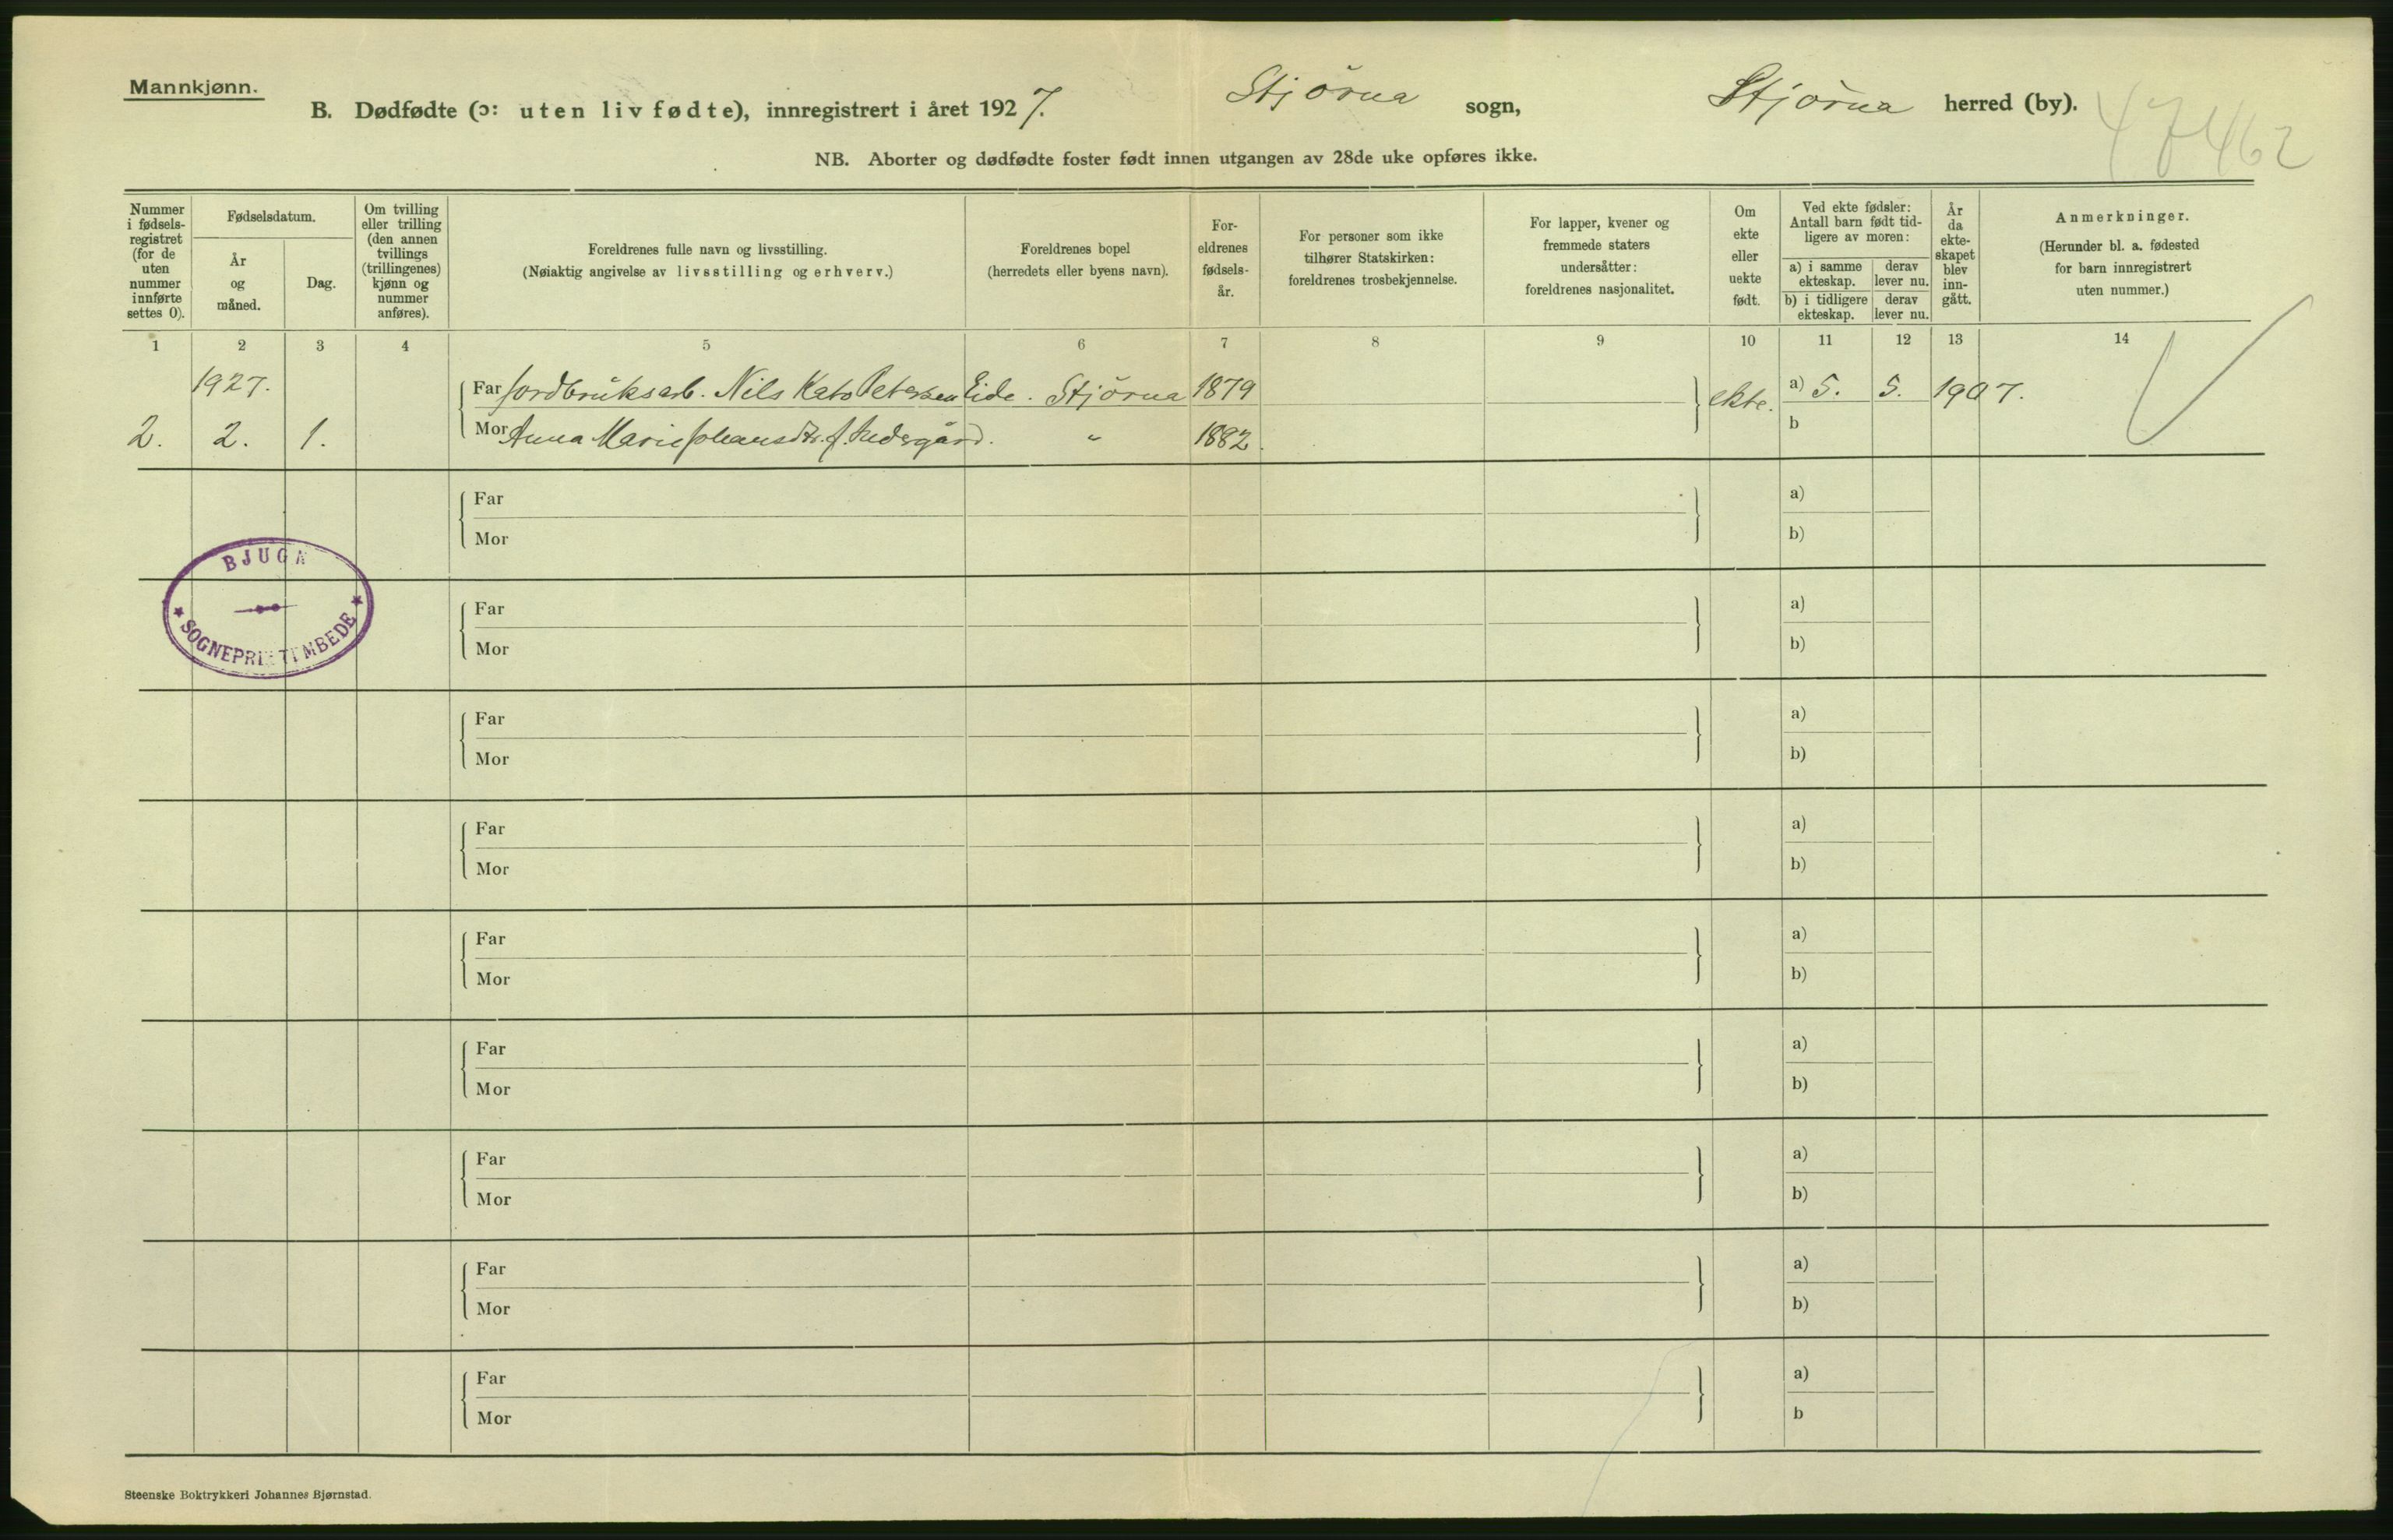 Mannkjønn.
B. Dødfødte (ɔ: uten liv fødte), innregistrert i året 1927. Stjörna sogn, Stjörna herred (by).
47462
NB. Aborter og dødfødte foster født innen utgangen av 28de uke opføres ikke.
Nummer i fødsels-registret (for de uten nummer innførte settes 0).
Fødselsdatum.
År og måned.
Dag.
Om tvilling eller trilling (den annen tvillings (trillingenes) kjønn og nummer anføres).
Foreldrenes fulle navn og livsstilling.
(Nøiaktig angivelse av livsstilling og erhverv.)
Foreldrenes bopel
(herredets eller byens navn).
For-eldrenes fødsels-år.
For personer som ikke tilhører Statskirken: foreldrenes trosbekjennelse.
For lapper, kvener og fremmede staters undersåtter: foreldrenes nasjonalitet.
Om ekte eller uekte født.
Ved ekte fødsler: Antall barn født tid-ligere av moren:
a) i samme ekteskap.
derav lever nu.
b) i tidligere ekteskap.
derav lever nu.
År da ekte-skapet blev inn-gått.
Anmerkninger.
(Herunder bl. a. fødested for barn innregistrert uten nummer.)
1 2 3 4 5 6 7 8 9 10 11 12 13 14
1927.
Far Jordbruksarb. Nils Kato Petersen Eide. Stjörna 1879 ekte. a) 5. 5. 1907.
2. 2. 1. Mor Anna Marie Johansdtr. f. " 1882. b
Far a)
Mor b)
BJUGN
SOGNEPRESTEMBEDE
Far a)
Mor b)
Far a)
Mor b)
Far a)
Mor b)
Far a)
Mor b)
Far a)
Mor b)
Far a)
Mor b)
Far a)
Mor b)
Far a)
Mor b
Steenske Boktrykkeri Johannes Bjørnstad.